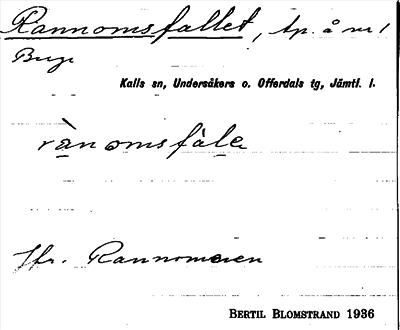 Rannomsfallet, tp. å nr 1
Kalls sn, Undersåkers o. Offerdals tg, Jämtl. l.
rànomsfàlẹ
Jfr. Rannomen
BERTIL BLOMSTRAND 1936